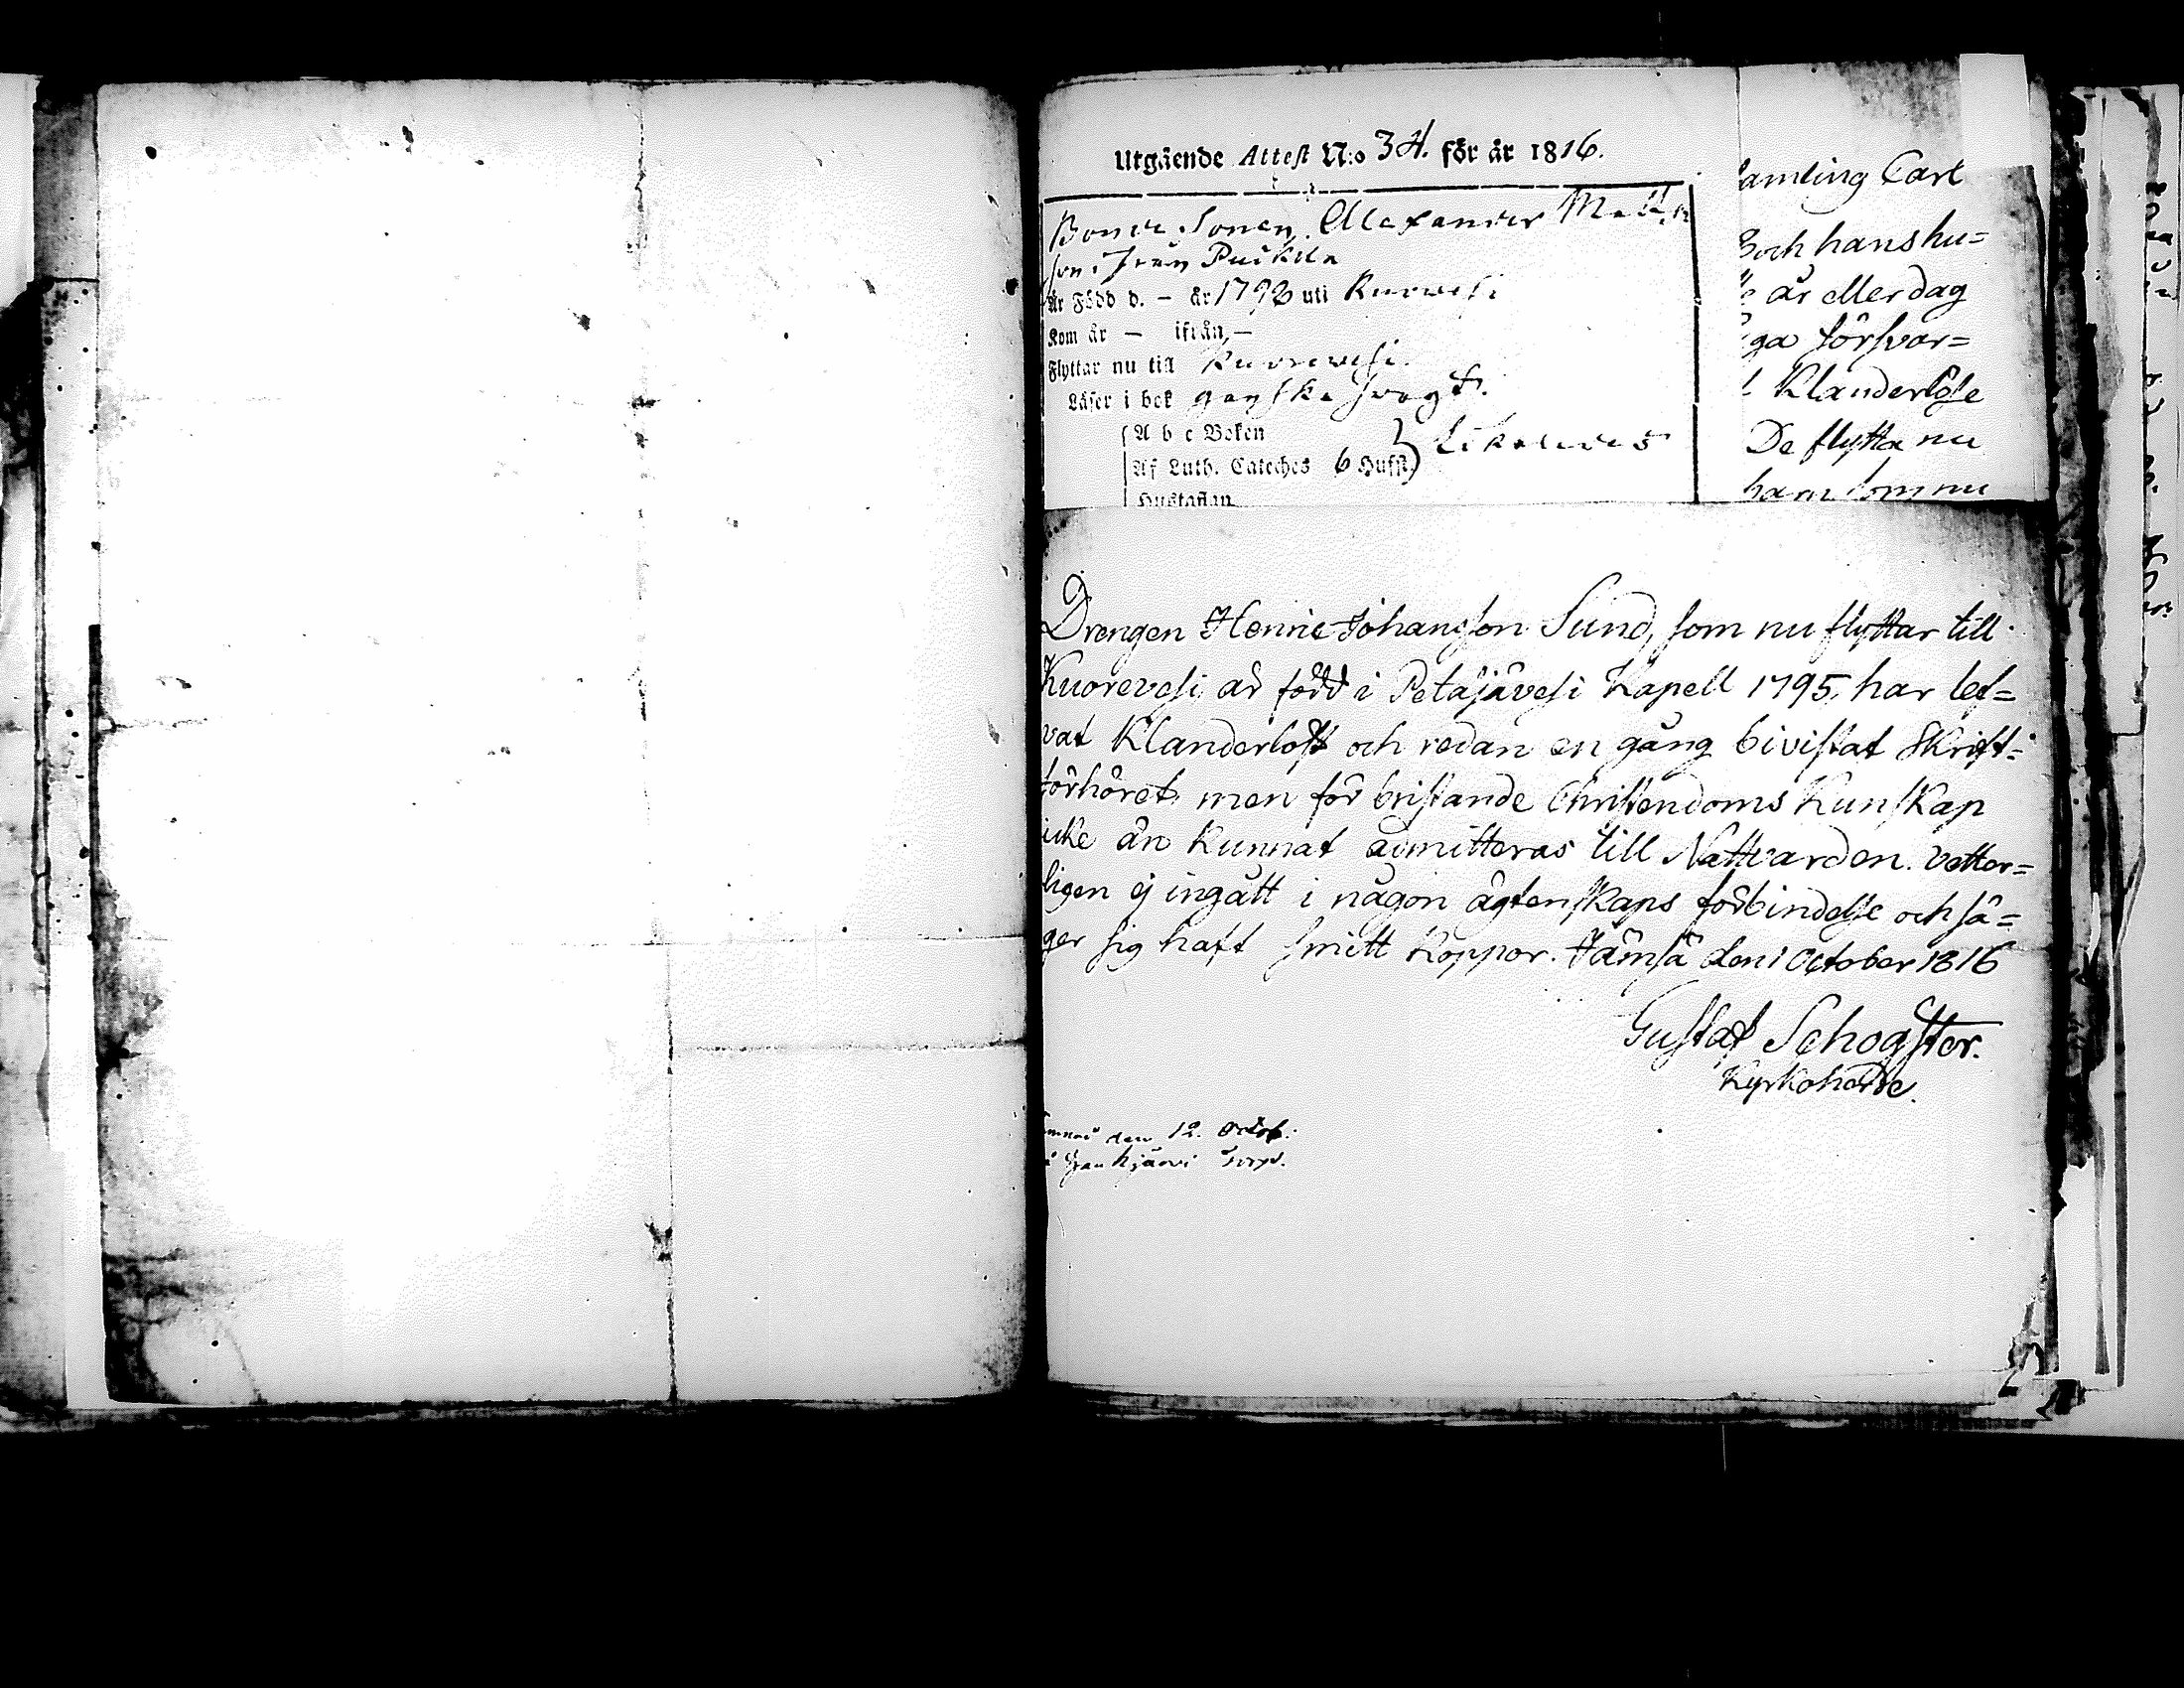 Utgående Attest N:o 34. för år 1816.
Bonde Sonen, Alexander Matts
son. från Puikila
Är Född d. – år 1793 uti Kurvesi
Kom år – ifrån, –
Flyttar nu till Kuorevesi.
Läser i bok ganska svagt.
A b c Boken
Af Luth. Cateches 6 Hufst.
Likaledes
Hustaflan
amling Carl
och hans hu=
år eller dag
ga försvar=
Klanderlöse
De flytta nu
barn som nu
Drengen Henric Johansson Sund, som nu flyttar till
Kuorevesi är född i Petäjävesi Kapell 1795, har lef=
vat Klanderlöst och redan en gång bivistat Skrift=
förhöret, men för bristande Christendoms Kunskap
icke än Kunnat admitteras till Nattvarden. Vetter=
ligen ej ingått i någon ägtenskaps förbindelse och sä=
ger sig haft smitt Koppor. Jämsä den 1 October 1816
Gustaf Schogster.
Kyrkoherde.
den 12. Octob: